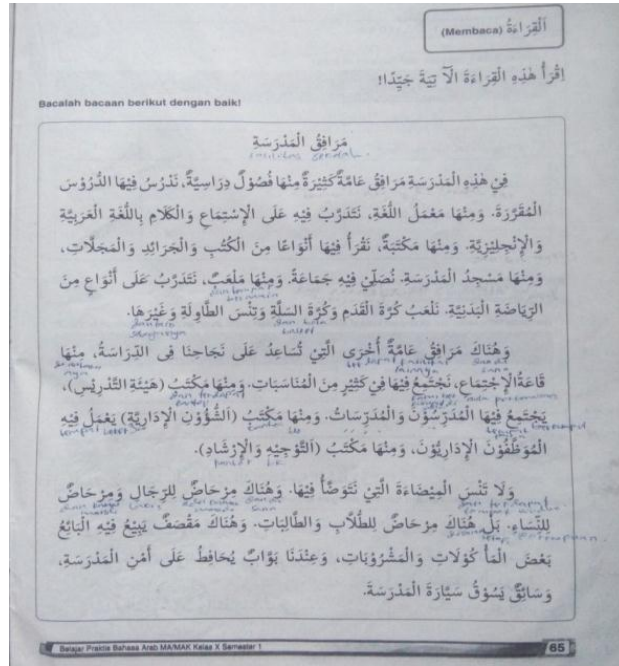 اَلْقِرَاءَةُ (Membaca)
اِقْرَأْ هٰذِهِ الْقِرَاءَةَ الْآتِيَةَ جَيِّدًا!
Bacalah bacaan berikut dengan baik!
مَرَافِقُ الْمَدْرَسَةِ
فِيْ هٰذِهِ الْمَدْرَسَةِ مَرَافِقُ عَامَّةٌ كَثِيْرَةٌ مِنْهَا فُصُوْلٌ دِرَاسِيَّةٌ، نَدْرُسُ فِيْهَا الدُّرُوْسَ
الْمُقَرَّرَةَ. وَمِنْهَا مَعْمَلُ اللُّغَةِ، نَتَدَرَّبُ فِيْهِ عَلَى الْإِسْتِمَاعِ وَالْكَلَامِ بِاللُّغَةِ الْعَرَبِيَّةِ
وَالْإِنْجِلِيْزِيَّةِ. وَمِنْهَا مَكْتَبَةٌ، نَقْرَأُ فِيْهَا أَنْوَاعًا مِنَ الْكُتُبِ وَالْجَرَائِدِ وَالْمَجَلَّاتِ،
وَمِنْهَا مَسْجِدُ الْمَدْرَسَةِ. نُصَلِّيْ فِيْهِ جَمَاعَةً. وَمِنْهَا مَلْعَبٌ، نَتَدَرَّبُ عَلَى أَنْوَاعٍ مِنَ
الرِّيَاضَةِ الْبَدَنِيَّةِ. نَلْعَبُ كُرَةَ الْقَدَمِ وَكُرَةَ السَّلَّةِ وَتِنْسَ الطَّاوِلَةِ وَغَيْرَهَا.
وَهُنَاكَ مَرَافِقُ عَامَّةٌ أُخْرَى الَّتِيْ تُسَاعِدُ عَلَى نَجَاحِنَا فِى الدِّرَاسَةُ، مِنْهَا
قَاعَةُ الْإِجْتِمَاعِ، نَجْتَمِعُ فِيْهَا فِيْ كَثِيْرٍ مِنَ الْمُنَاسَبَاتِ. وَمِنْهَا مَكْتَبُ (هَيْئَةِ التَّدْرِيْسِ)،
يَجْتَمِعُ فِيْهَا الْمُدَرِّسُوْنَ وَالْمُدَرِّسَاتُ. وَمِنْهَا مَكْتَبُ (اَلشُّؤُوْنِ الْإِدَارِيَّةِ) يَعْمَلُ فِيْهِ
الْمُوَظَّفُوْنَ الْإِدَارِيُّوْنَ، وَمِنْهَا مَكْتَبُ (اَلتَّوْجِيْهِ وَالْإِرْشَادِ).
وَلَا تَنْسَ الْمِيْضَاءَةَ الَّتِيْ نَتَوَضَّأُ فِيْهَا. وَهُنَاكَ مِرْحَاضٌ لِلرِّجَالِ وَمِرْحَاضٌ
لِلنِّسَاءِ. بَلْ هُنَاكَ مِرْحَاضٌ لِلطُّلَّابِ وَالطَّالِبَاتِ. وَهُنَاكَ مَقْصَفٌ يَبِيْعُ فِيْهِ الْبَائِعُ
بَعْضَ الْمَأْكُوْلَاتِ وَالْمَشْرُوْبَاتِ، وَعِنْدَنَا بَوَّابٌ يُحَافِظُ عَلَى أَمْنِ الْمَدْرَسَةِ،
وَسَائِقٌ يَسُوْقُ سَيَّارَةَ الْمَدْرَسَةَ.
Belajar Praktis Bahasa Arab MA/MAK Kelas X Semester 1
65